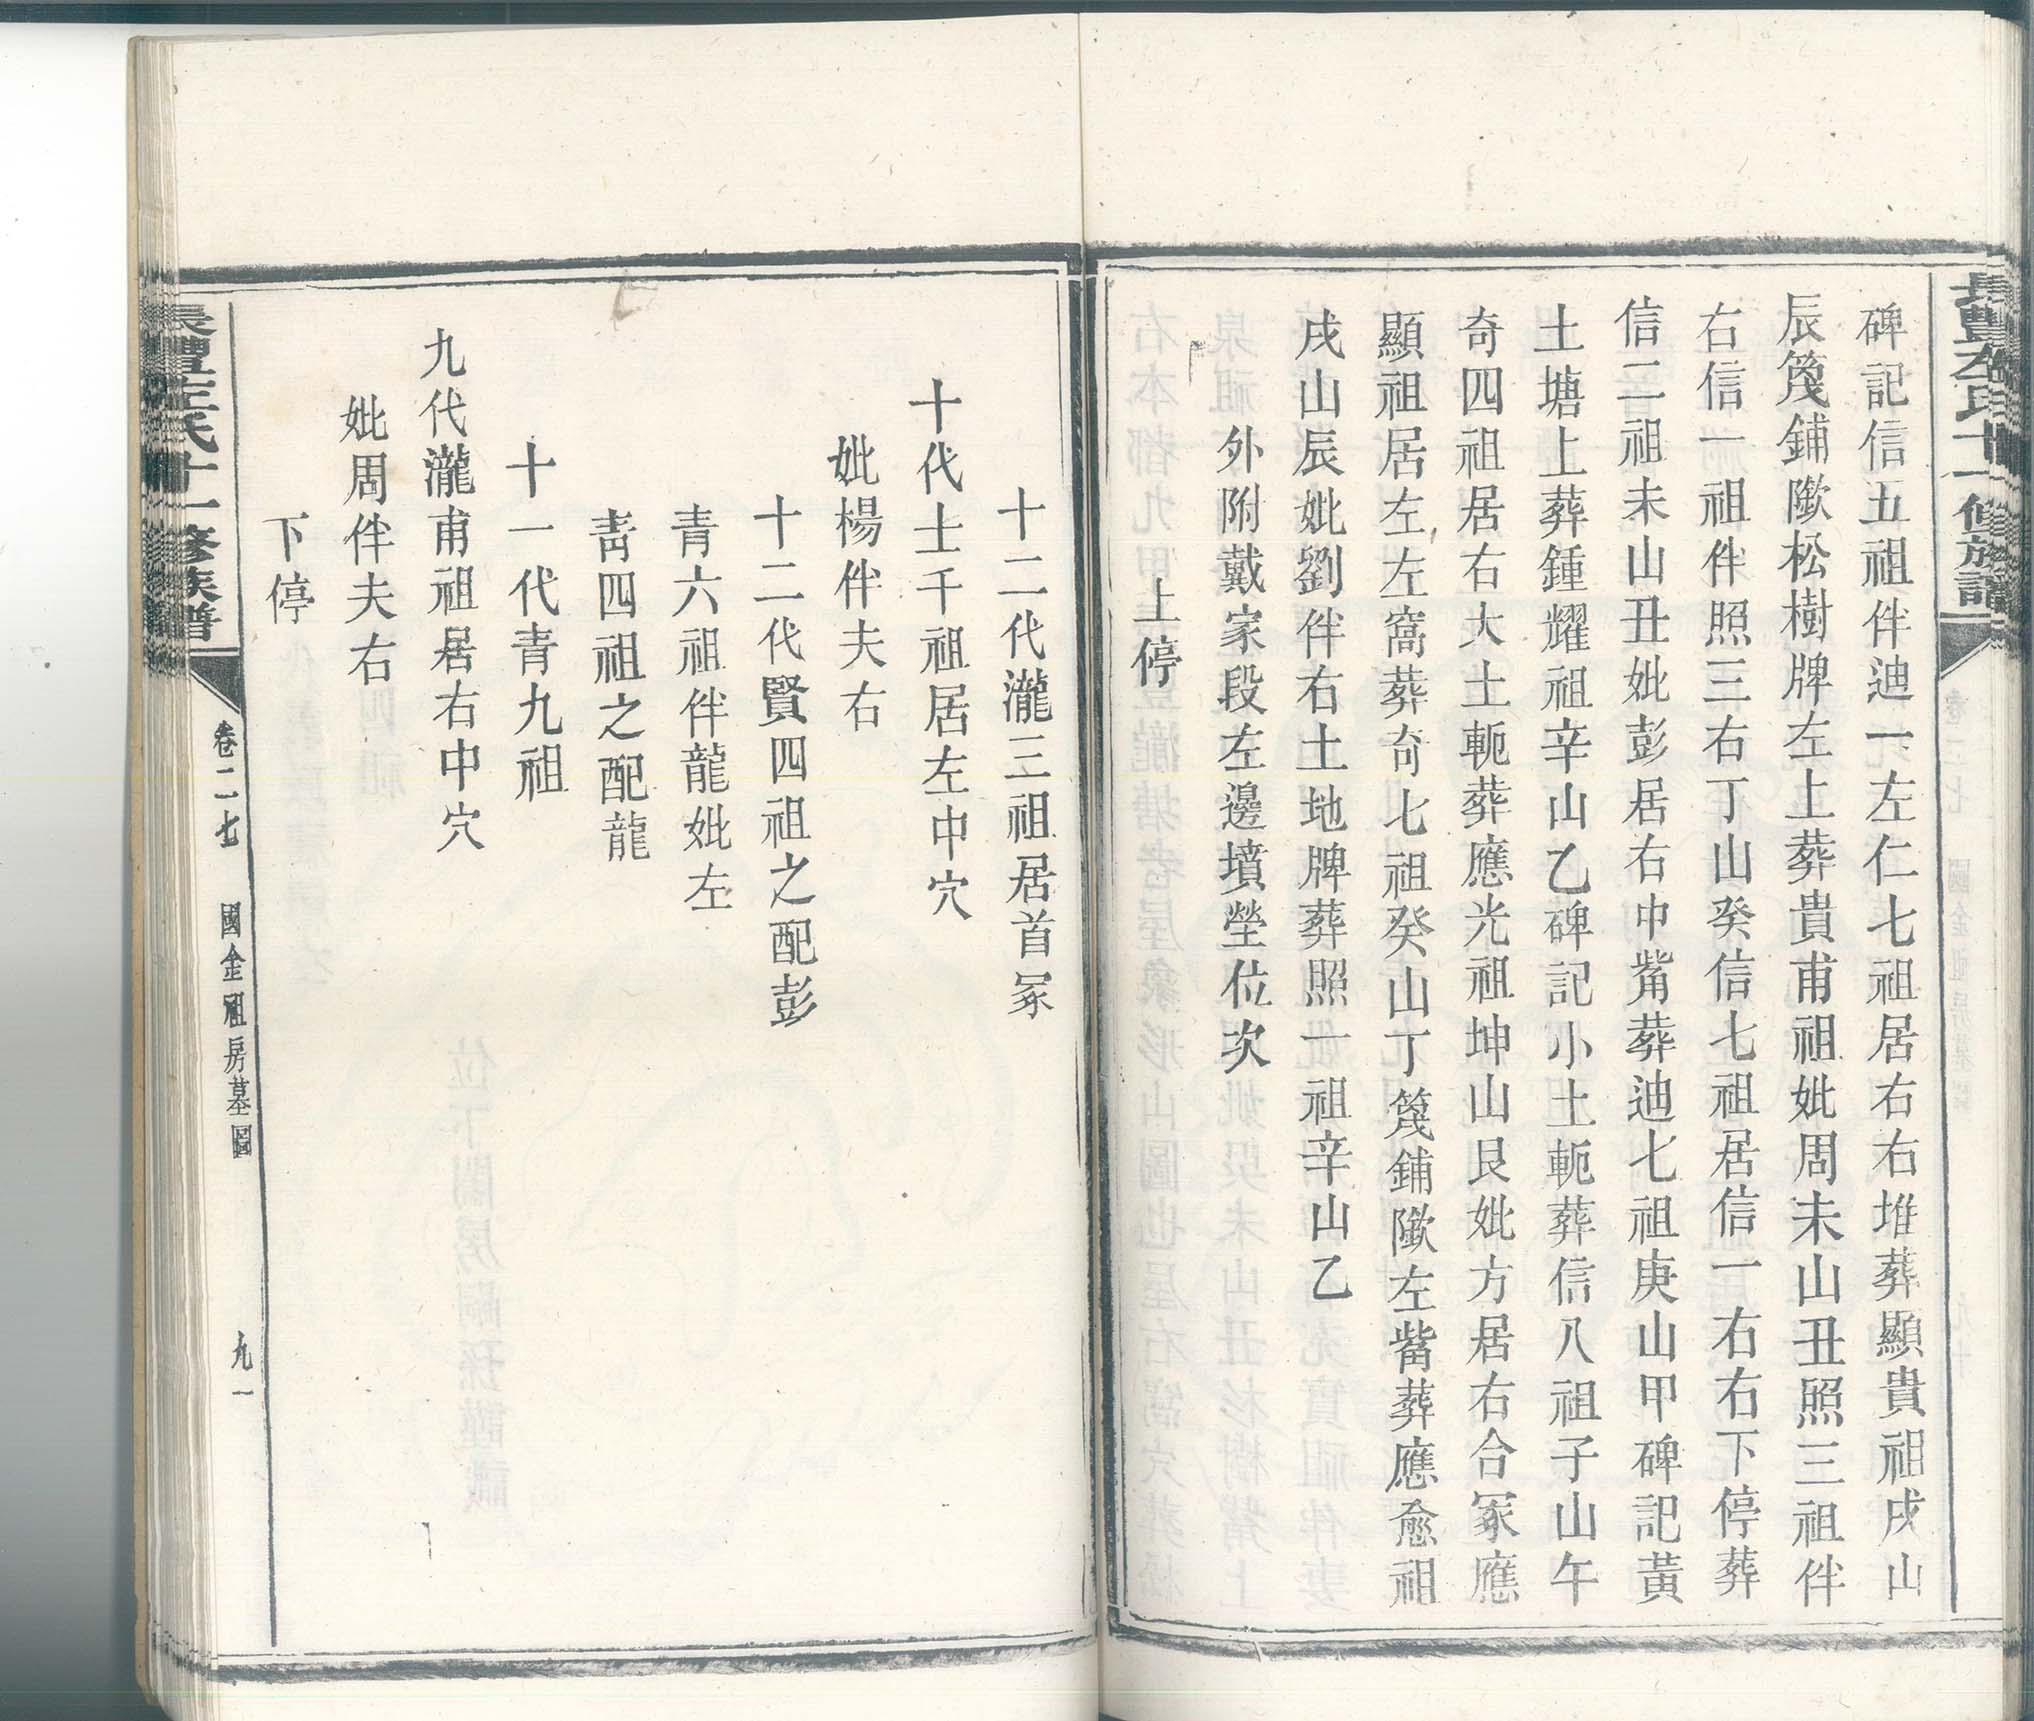 長豐左氏十一修族譜
碑記信五祖伴迪一左仁七祖居右右堆葬顯貴祖戌山
辰篾鋪隞松樹牌左上葬貴甫祖妣周未山丑照三祖伴
右信一祖伴照三右丁山癸信七祖居信一右右下停葬
信二祖未山丑妣彭居右中嘴葬迪七祖庚山甲碑記黃
土塘上葬鍾耀祖辛山乙碑記小土軛葬信八祖子山午
奇四祖居右大土軛葬應光祖坤山艮妣方居右合冢應
顯祖居左左窩葬奇七祖癸山丁篾鋪隞左嘴葬應愈祖
戌山辰妣劉伴右土地牌葬照一祖辛山乙
外附戴家段左邊墳塋位次
上停
十二代瀧三祖居首冢
十代士千祖居左中穴
妣楊伴夫右
十二代賢四祖之配彭
青六祖伴龍妣左
青四祖之配龍
十一代青九祖
九代瀧甫祖居右中穴
妣周伴夫右
下停
長豐左氏十一修族譜
卷二七
國金祖房墓圖
九一